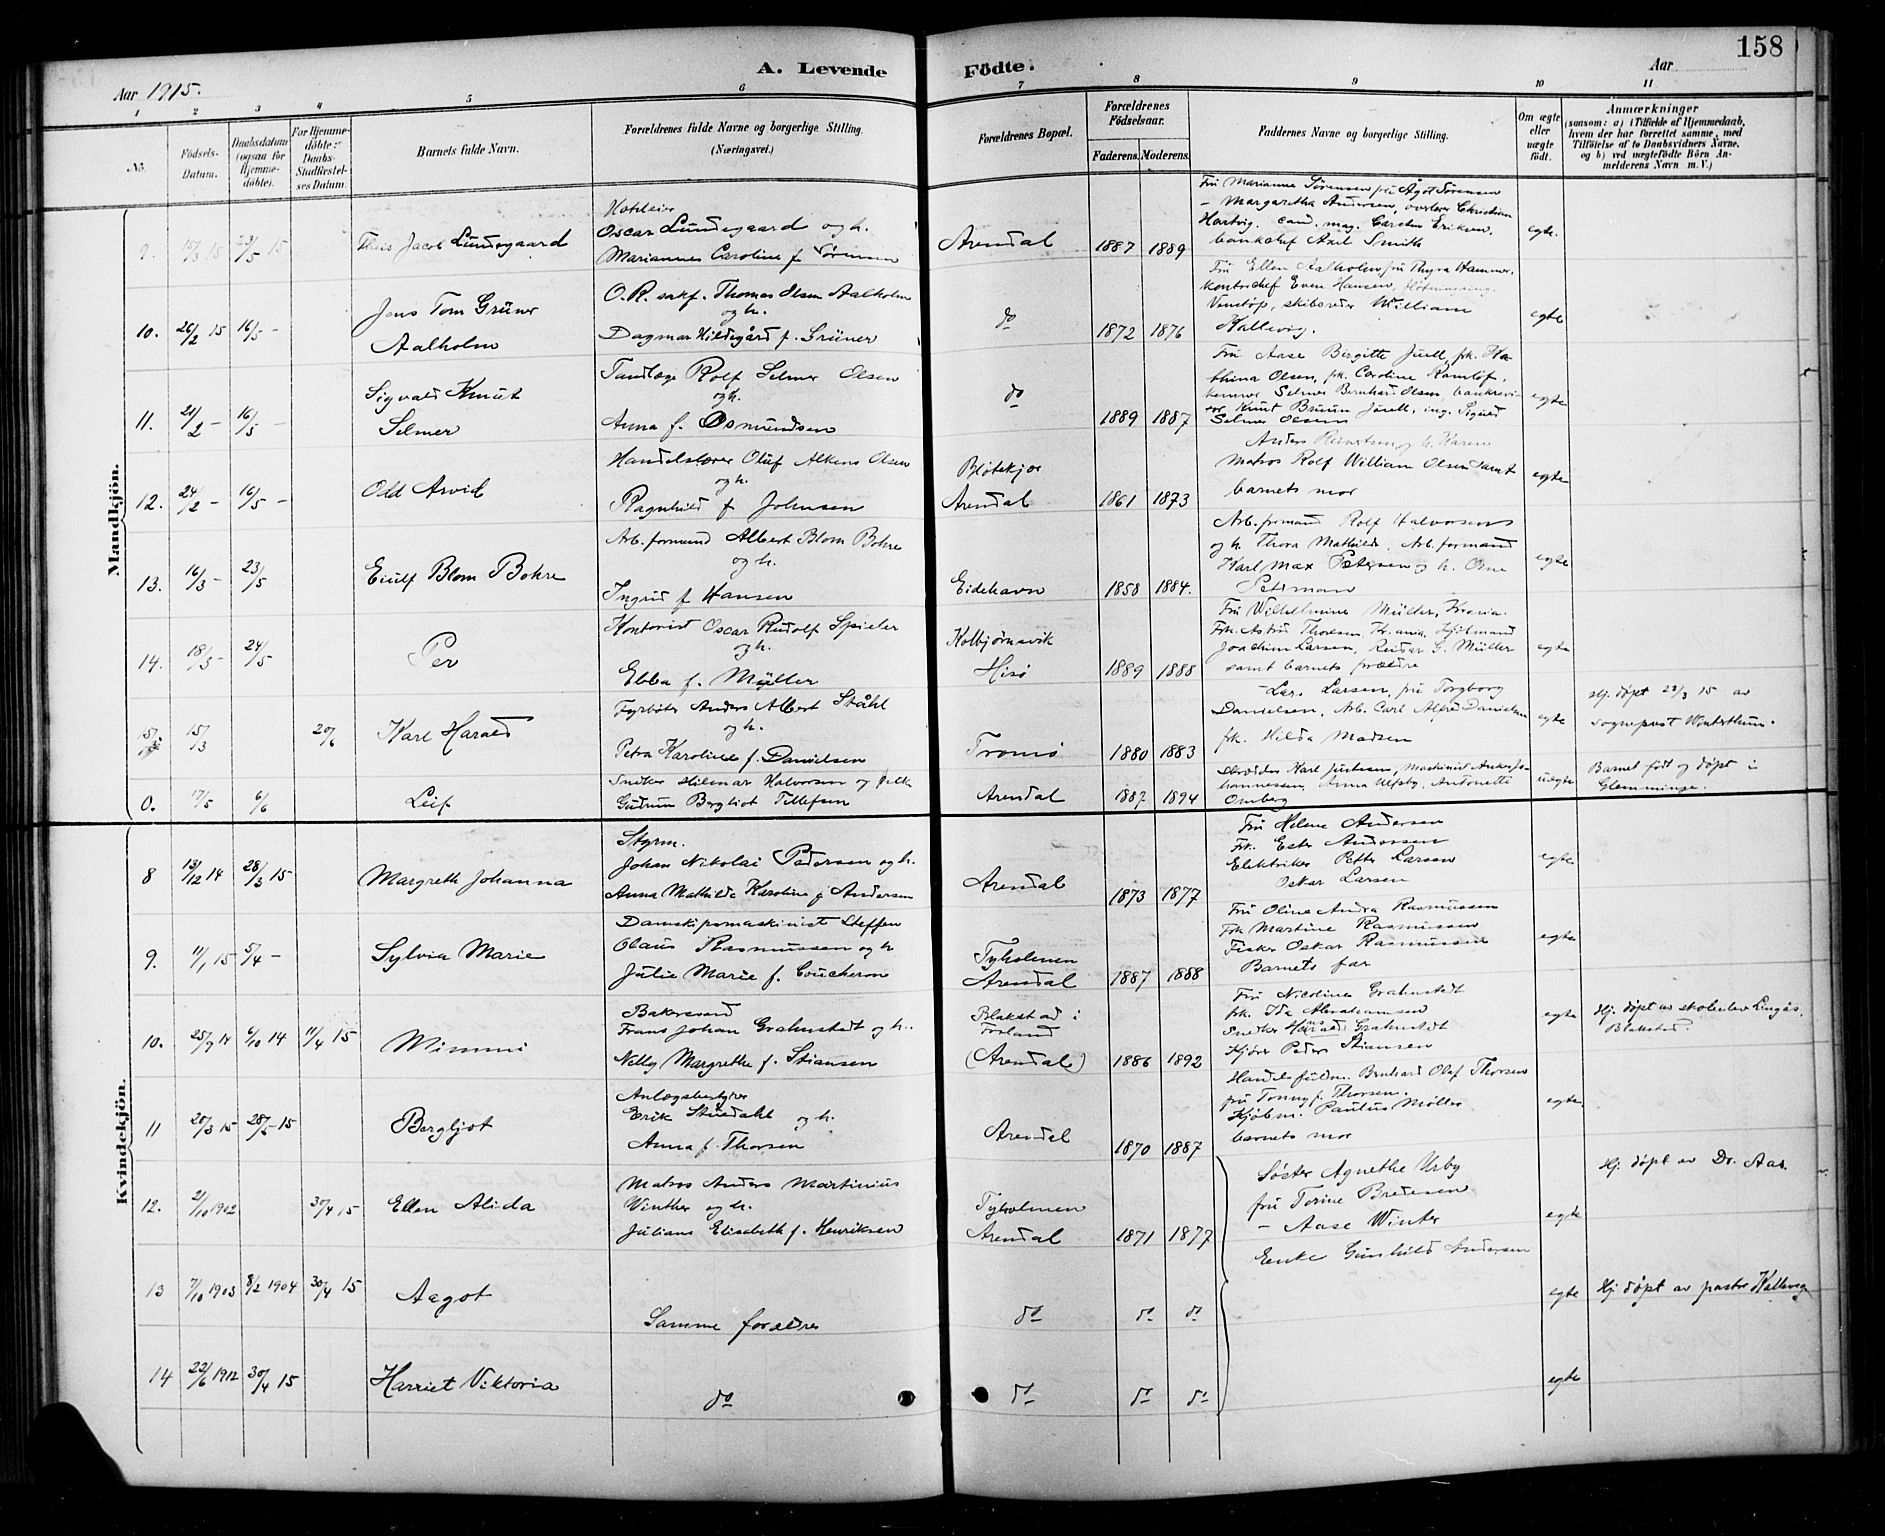 158
A. Levende Födte.
Aar 1915.
Aar
1 2 3 4 5 6 7 8 9 10 11
No.
Födsels-Datum.
Daabsdatum (ogsaa for Hjemmedöbte).
For Hjemmedöbte: Daabs-Stadfæstelses Datum.
Barnets fulde Navn.
Forældrenes fulde Navne og borgerlige Stilling. (Næringsvei.)
Forældrenes Bopæl.
Forældrenes Födselsaar.
Faderens. Moderens.
Faddernes Navne og borgerlige Stilling.
Om ægte eller uægte födt.
Anmærkninger
(saasom: a) i Tilfælde af Hjemmedaab, hvem der har forrettet samme, med Tilföielse af to Daabsvidners Navne. og b) ved uægtefödte Börn Anmelderens Navn m. V.)
Mandkjön.
9. 15/3 15 23/5 15 This Jacob Lundegaard
Oscar Lundegaard og h.
Mariannes Caroline f. Sørensen
Arendal 1887 1889
Fru Marianne Sørensen, fru Ågot Sørensen
– Margaretha Andersen, overlærer Christian
Hartvig, cand. mag. Carsten Eriksen,
bankchef Axel Smith
egte.
10. 26/2 15 16/5 – Jens Tom Grüner
Aalholm
O.R. sakf. Thomas Olsen Aalholm
og h.
Dagmar Hildegård f. Grüner
do 1872 1876
Fru Ellen Aalholm, fru Thyra Hammer,
kontorchef Even Hansen,
Ventop, skibsreder William
Kallevig.
egte
11. 21/2 – 16/5 – Sigvald Knut
Selmer
Tandlæge Rolf Selmer Olsen
og h.
Anna f. Osmundsen
do 1889 1887
Fru Aase Birgitte Juell, frk. Ka-
thina Olsen, frk. Caroline Ramløf,
Selmer Bernhard Olsen, bankrevi-
sor Knut Bruun Juell, ing. Sigurd
Selmer Olsen
egte
12. 24/2 – 16/5 – Odd Arvid
Handelslærer Oluf Alkens Olsen
og h.
Ragnhild f. Johnsen
Bløtekjær
Arendal 1861 1873
Anders Reinertsen og h. Karen
Matros Rolf William Olsen samt
barnets mor
egte
13. 16/3 – 23/5 Eiulf Blom Bohre
Arb. formand Albert Blom Bohre
og h.
Ingrid f. Hansen
Eidehavn 1858 1884.
Arb. formand Rolf Halvorsen
og h. Thora Mathilde, Arb. formand
Karl Max Petersen og h. Oine
Petersen
egte
14. 18/3 – 24/5 Per
Kontorist Oscar Rudolf Spieler
og h.
Ebba f. Müller
Kolbjørnsvik
Hisø 1889 1888
Fru Wilhelmine Müller, Kr.ania.
Frk. Astrid Thoresen, Kr.ania, Kjøbmand
Joachim Larsen, Reidar G. Müller
samt barnets forældre
egte
15. 15/3 20/6 Karl Harald
Fyrbøter Anders Albert Ståhl
og h.
Petra Karoline f. Danielsen
Tromø 1880 1883
Lars Larsen, fru Torgborg
Danielsen, Arb. Carl Alfred Danielsen
frk. Hilda Madsen
egte
Hj. døpt 22/3 15 av
sogneprest Winterthun.
0. 17/5 6/6 Leif
Snekker Hilmar Halvorsen og pike
Gudrun Bergliot Tellefsen
Arendal 1887 1894
Skrædder Karl Justesen, Maskinist Anker Jo-
hannessen, Anna Ulfsby, Antonette
Omberg
uegte
Barnet født og døpt i
Glemminge.
Kvindekjön.
8 13/12 14 28/3 15 Margreth Johanna
Styrm.
Johan Nikolai Pedersen og h.
Anna Mathilde Karoline f. Andersen
Arendal 1873 1877
Fru Helene Andersen
Frk. Ester Andersen
Elektriker Petter Larsen
Oskar Larsen
egte
9. 11/1 15 5/4 – Sylvia Marie
Dampskipsmaskinist Steffen
Olaus Rasmussen og h
Julie Marie f. Coucheron
Tyholmen
Arendal 1887 1888
Fru Oline Andra Rasmussen
Frk Martine Rasmussen
Fisker Oskar Rasmussen
Barnets far
egte
10. 25/9 14 6/10 14 11/4 15 Mimmi
Bakersvend
Frans Johan Grahnstedt og h.
Nelly Margrethe f. Stiansen
Blakstad i
Froland
(Arendal) 1886 1892
Fru Nicoline Grahnstedt
frk. Ida Abrahamsen
Snedker Harald Grahnstedt
Kjører Peder Stiansen
egte
Hj. døpt av skolelærer Lingås,
Blakstad.
11 20/3 15 28/5 – 15 Bergljot
Anlægsbestyrer
Erik Stuedahl og h.
Anna f. Thorsen
Arendal 1870 1887
Handelsfuldm. Bernhard Olaf Thorsen
fru Tonny f. Thorsen.
Kjøbm. Paulus Møller
barnets mor
egte
12. 21/10 1902 30/4 15 Ellen Alida
Matros Anders Martinius
Winther og h.
Juliane Elisabeth f. Henriksen
Tyholmen
Arendal 1871 1877
Søster Agnethe Urby
fru Torine Bredesen
– Aase Winter
Enke Gunhild Andersen
egte
Hj. døpt av Dr. Aas.
13 7/10 1903 8/2 1904 30/4 15 Aagot
Samme forældre
do do do
egte
Hj døpt av pastor Kallevig
14 22/6 1912 30/4 15 Harriet Viktoria
do do do do
egte